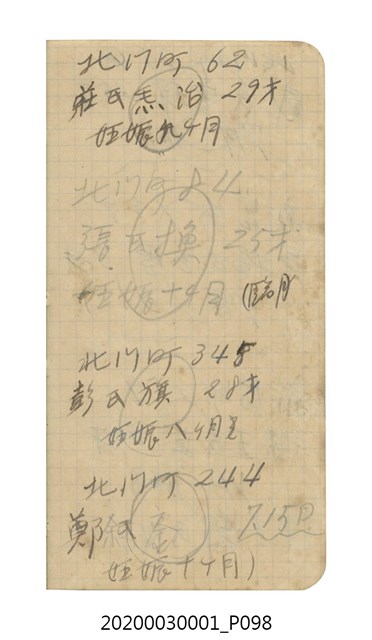 北門町 62
莊氏焄治 29才
妊娠九ヶ月
北門町 84
張氏換 25才
妊娠十ヶ月 (臨月)
北門町 348
彭氏旗 28才
妊娠八ヶ月
北門町 244
鄭氏
妊娠十ヶ月)
20200030001_P098